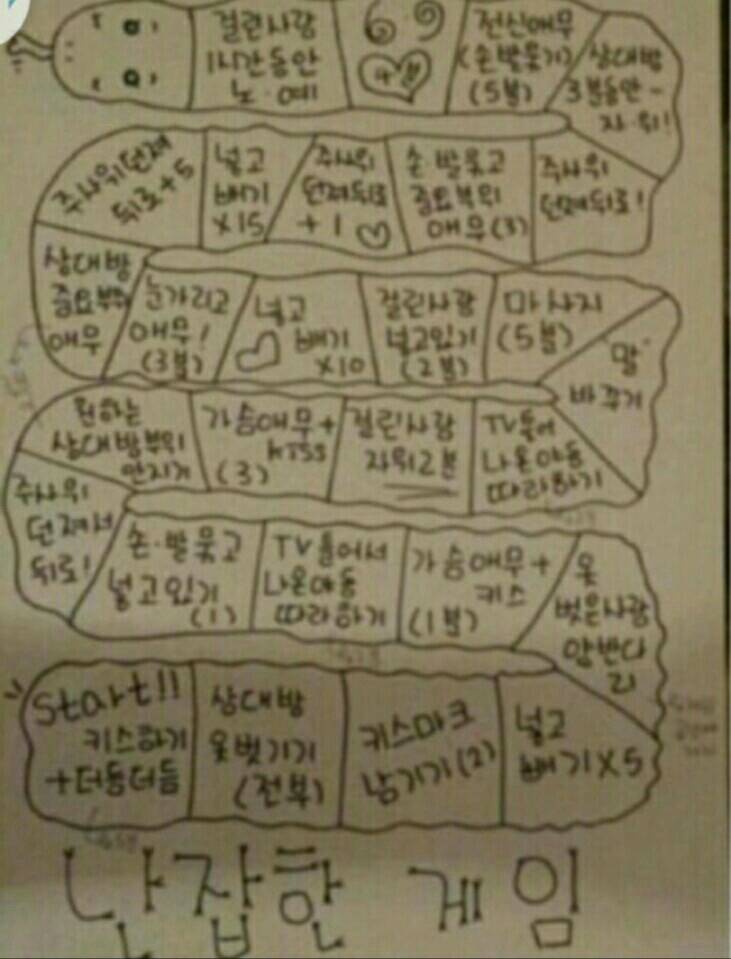 걸린사람
1시간동안
노·예
69
전신애무
(손발묶기)
(5분)
상대방
3분동안-
자·위!
주사위던져
뒤로+5
넣고
빼기
X15
주사위
던져뒤로
+1 ♡
손·발묶고
중요부위
애무(3)
주사위
던져뒤로!
상대방
중요부위
애무
눈가리고
애무!
(3분)
넣고
♡ 빼기
X10
걸린사람
넣고있기
(2분)
마사지
(5분)
"말"
바꾸기
원하는
상대방부위
만지기
가슴애무+
kiss
(3)
걸린사람
자위2분
TV틀어
나온야동
따라하기
주사위
던져서
뒤로!
손·발묶고
넣고있기
(1)
TV틀어서
나온야동
따라하기
가슴애무+
키스
(1분)
옷
벗은사람
Start!!
키스하기
+더듬더듬
상대방
옷벗기기
(전부)
키스마크
남기기(2)
넣고
빼기X5
난잡한 게임